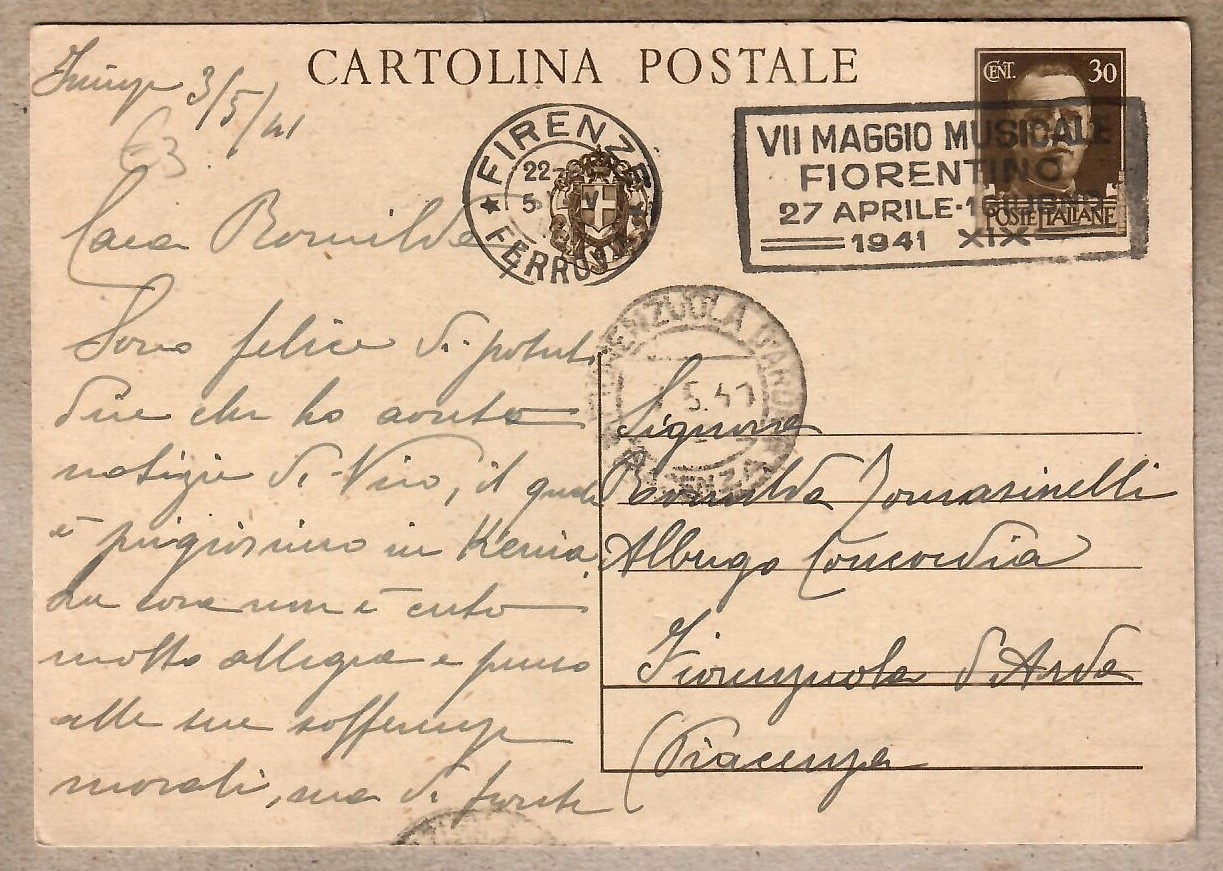 CARTOLINA POSTALE
CENT. 30
POSTE ITALIANE
VII MAGGIO MUSICALE
FIORENTINO
27 APRILE-1GIUGNO
1941 XIX
FIRENZE
22
5 V
FERROVIA
FIORENZUOLA D'ARDA
5.41
PIACENZA
Firenze 3/5/41
63.
Cara Romilda
Sono felice di poterti
dire che ho avuto
notizie di Nino, il quale
è prigioniero in Kenia.
La cosa non è certo
molto allegra e penso
alle sue sofferenze
morali, ma di fronte
Signora
Romilda Tomasinelli
Albergo Concordia
Fiorenzuola d'Arda
(Piacenza